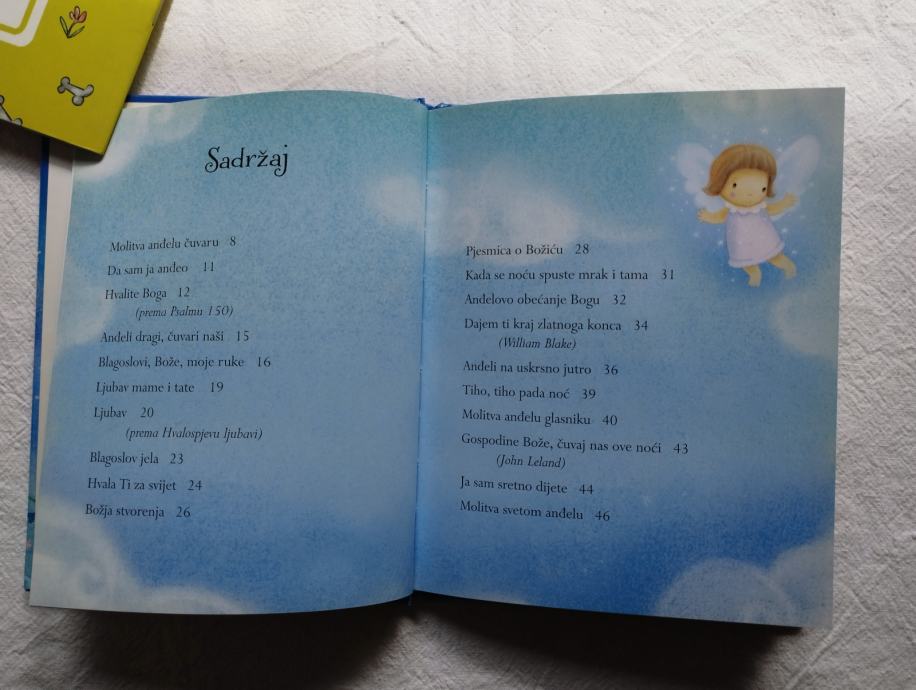 Sadržaj
Molitva anđelu čuvaru 8
Da sam ja anđeo 11
Hvalite Boga 12
(prema Psalmu 150)
Anđeli dragi, čuvari naši 15
Blagoslovi, Bože, moje ruke 16
Ljubav mame i tate 19
Ljubav 20
(prema Hvalospjevu ljubavi)
Blagoslov jela 23
Hvala Ti za svijet 24
Božja stvorenja 26
Pjesmica o Božiću 28
Kada se noću spuste mrak i tama 31
Anđelovo obećanje Bogu 32
Dajem ti kraj zlatnoga konca 34
(William Blake)
Anđeli na uskrsno jutro 36
Tiho, tiho pada noć 39
Molitva anđelu glasniku 40
Gospodine Bože, čuvaj nas ove noći 43
(John Leland)
Ja sam sretno dijete 44
Molitva svetom anđelu 46